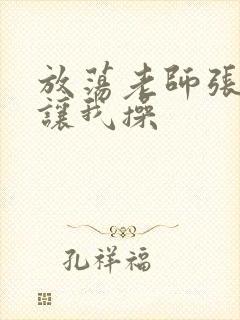 放蕩老師張
讓我操
孔祥福